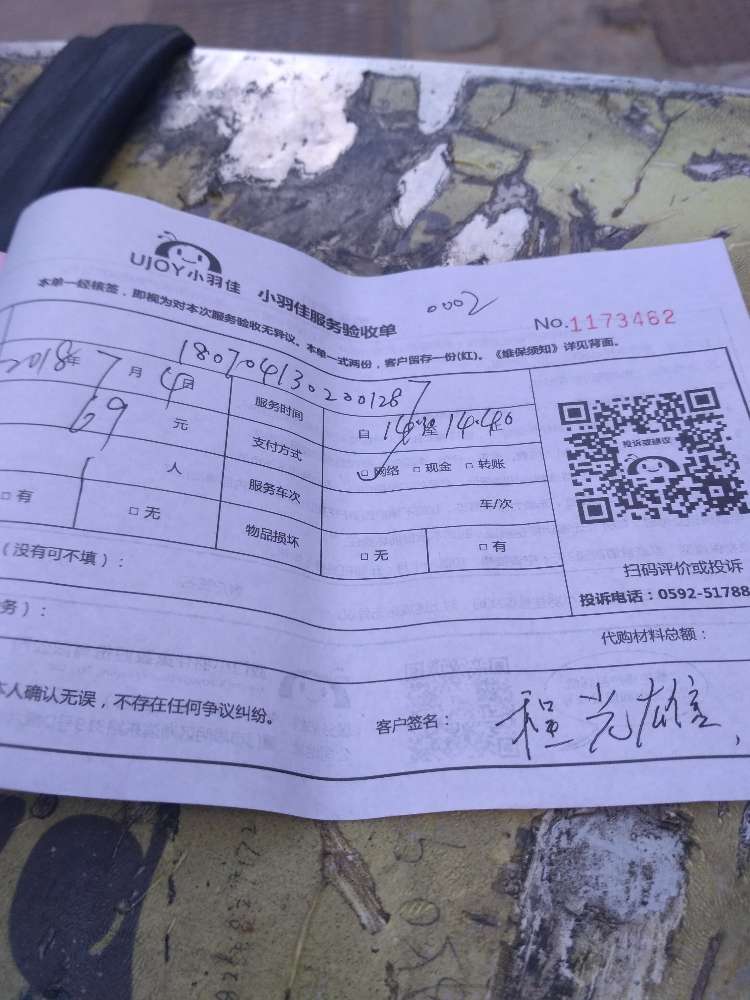 UJOY小羽佳 小羽佳服务验收单
0002
No.1173462
本单一经核签，即视为对本次服务验收无异议。本单一式两份，客户留存一份(红)。《维保须知》详见背面。
180704130200128
2018年7月4日 服务时间 自14:00至14:40止
69元 支付方式 □网络 □现金 □转账
人 服务车次 车/次
□有 □无 物品损坏 □无 □有
投诉或建议
扫码评价或投诉
投诉电话：0592-51788
（没有可不填）：
务）：
代购材料总额：
本人确认无误，不存在任何争议纠纷。
客户签名：程光雄